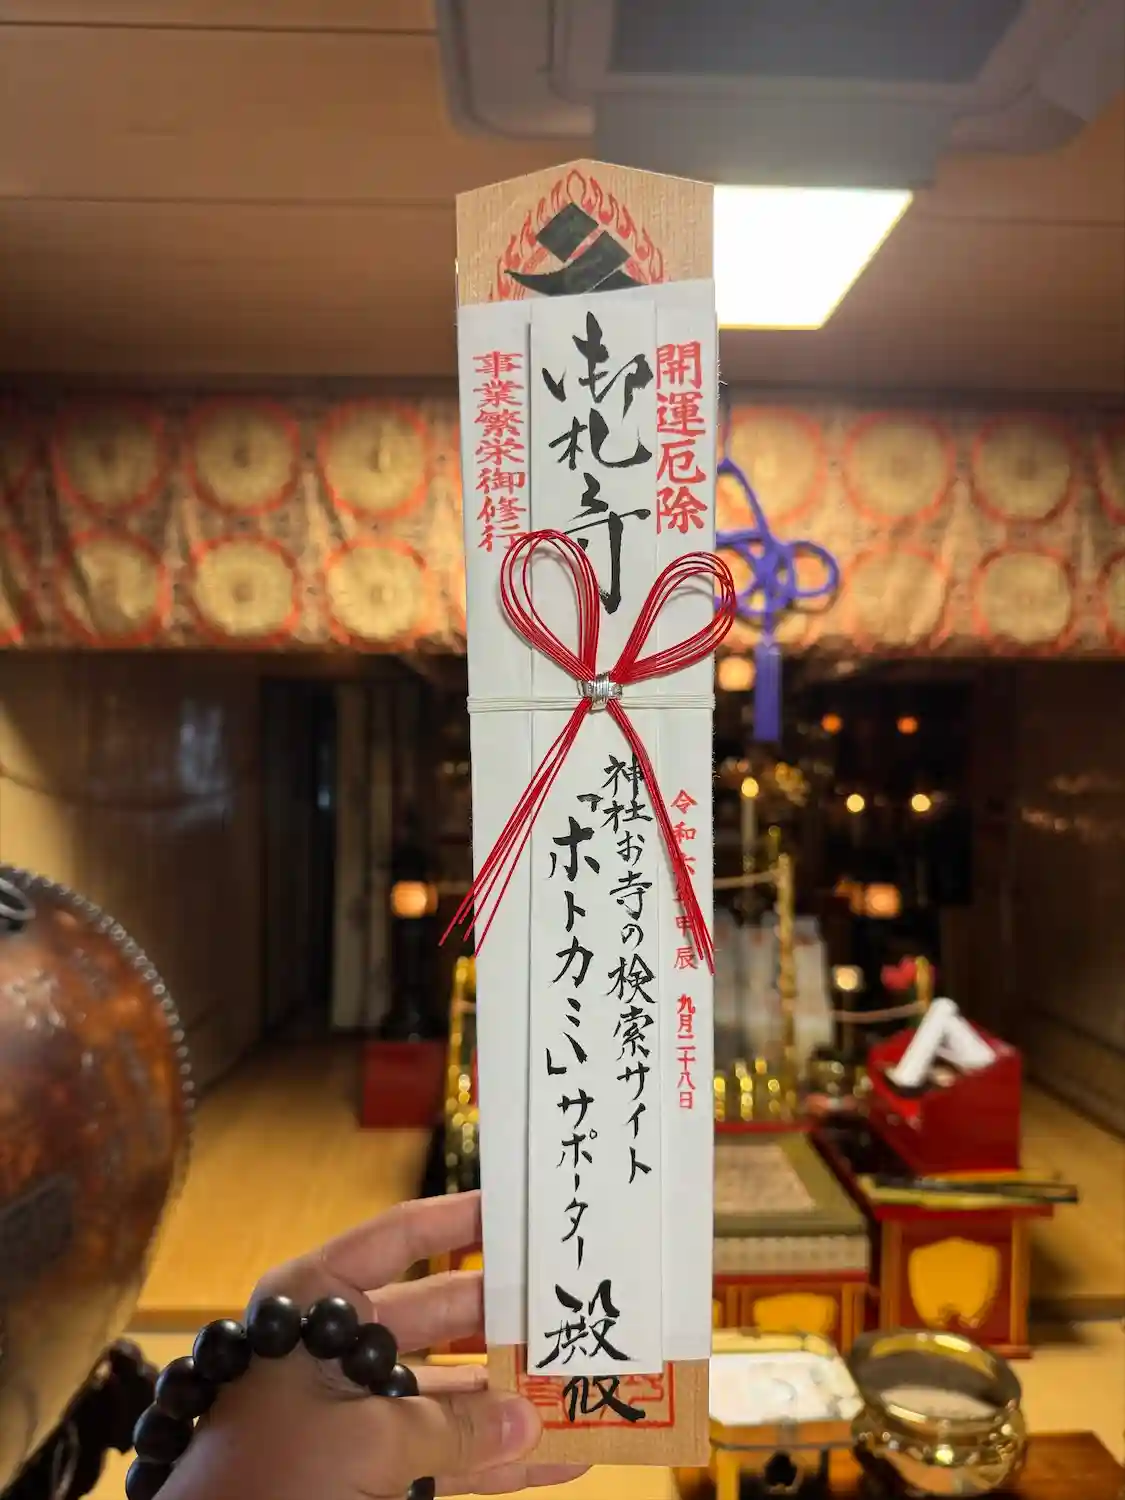 開運厄除
御札寺
事業繁栄御修行
令和六年甲辰 九月二十八日
神社お寺の検索サイト
「ホトカミ」サポーター
殿